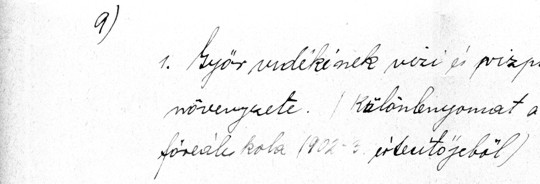 9)
1. Győr vidékének vizi és vizp
növenyzete. ( Különlenyomat a
főreáliskola 1902-3. értesítőjéből)